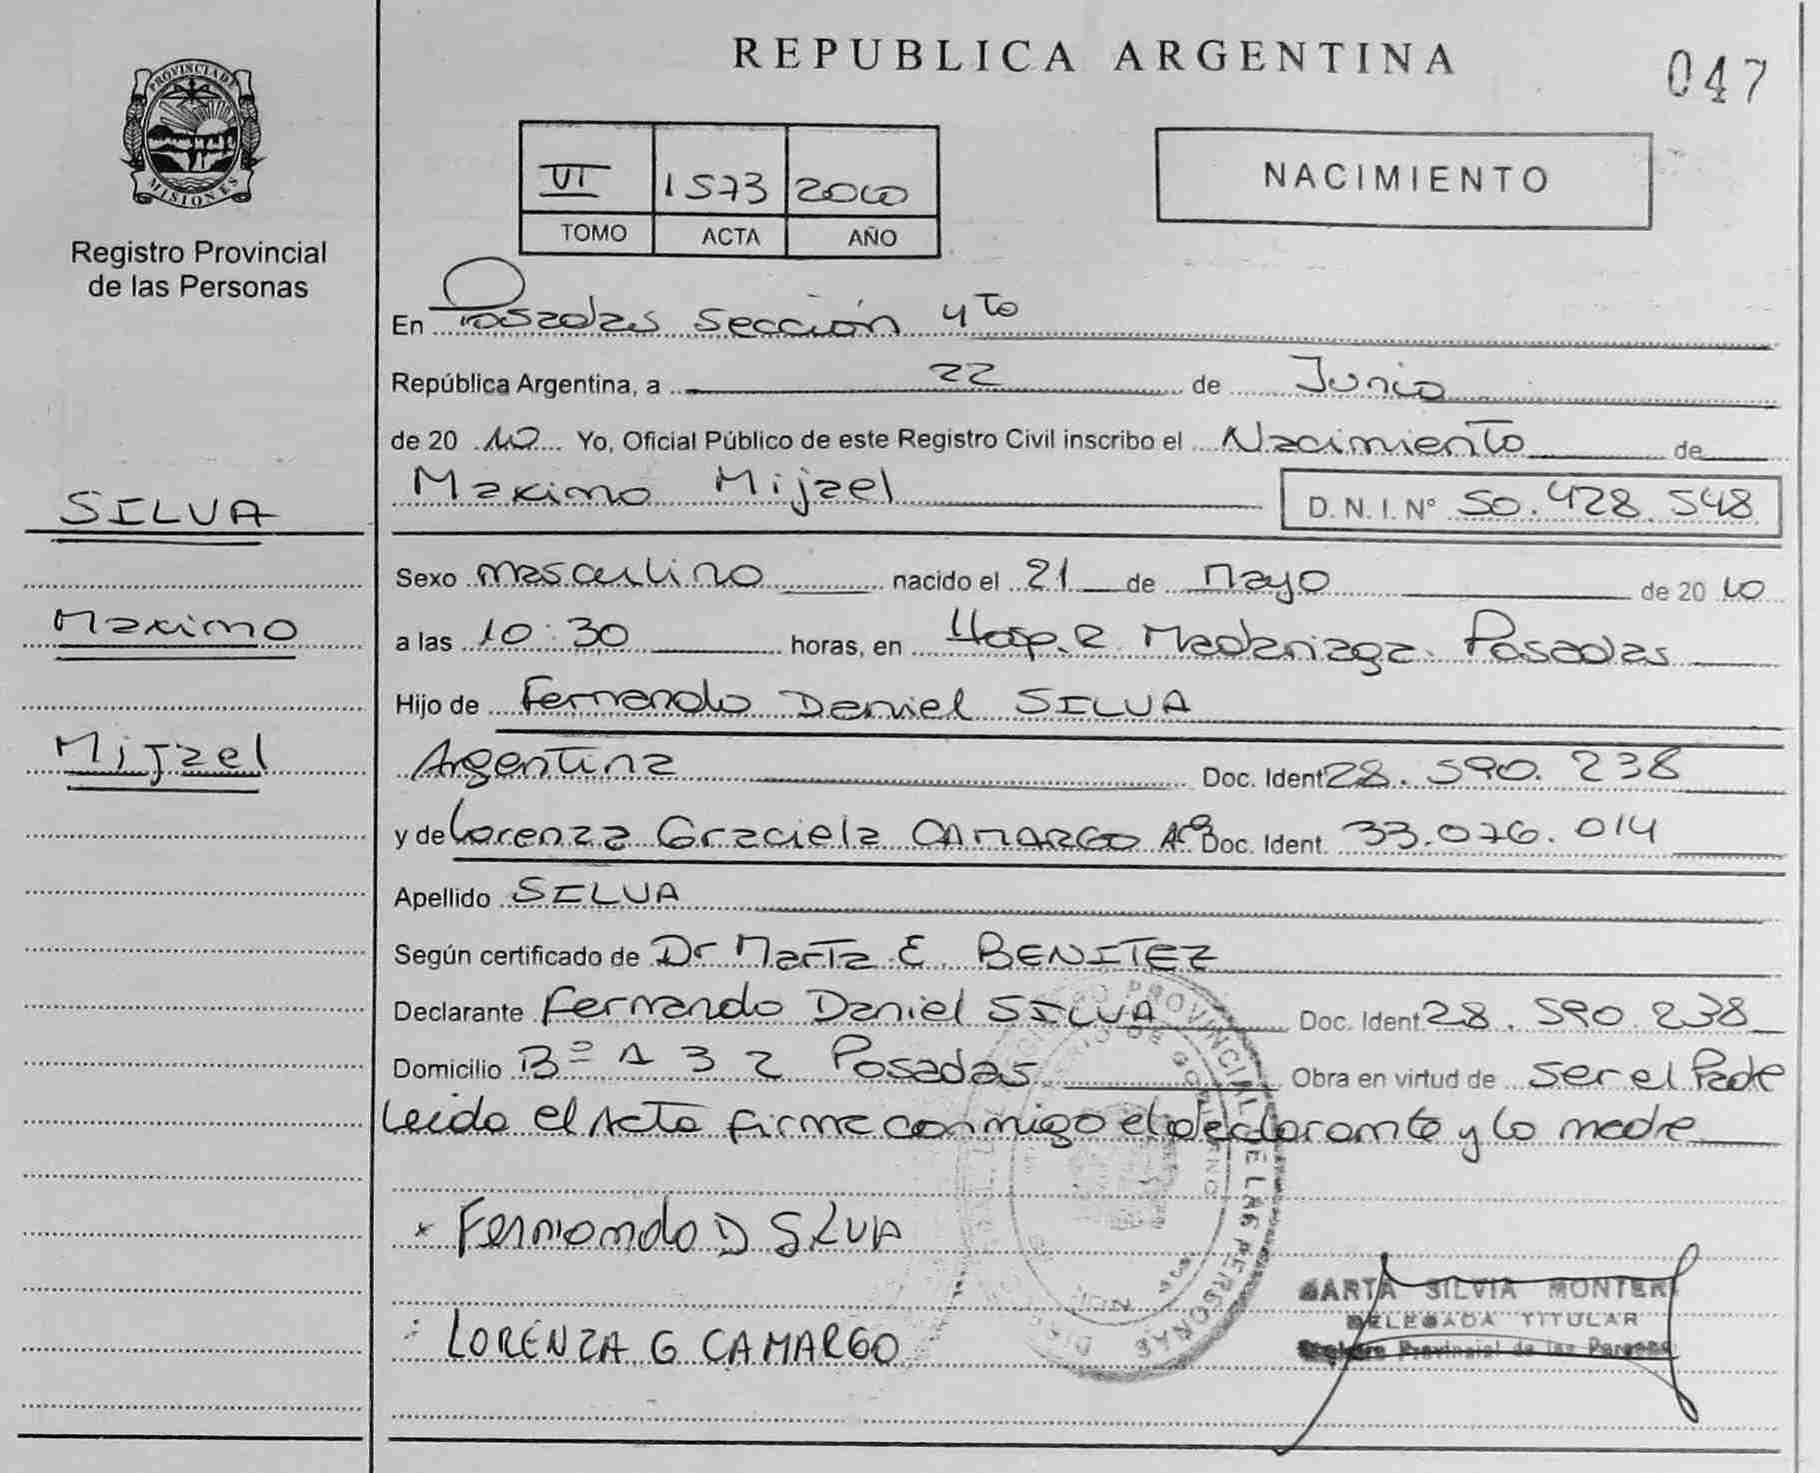 REPUBLICA ARGENTINA
047
PROVINCIA DE
MISIONES
Registro Provincial
de las Personas
VI 1573 2010
TOMO ACTA AÑO
NACIMIENTO
En Posadas sección 4to
República Argentina, a 22 de Junio
de 20 10 Yo, Oficial Público de este Registro Civil inscribo el Nacimiento de
SILVA
Maximo Mijael D.N.I. Nº 50.428.548
Sexo masculino nacido el 21 de mayo de 20 10
Maximo
a las 10:30 horas, en Hosp. R. Madariaga. Posadas
Hijo de Fernando Daniel SILVA
Mijael
Argentina Doc. Ident 28.590.238
y de Lorenza Graciela CAMARGO Doc. Ident. 33.076.014
Apellido SILVA
Según certificado de Dr Marta E. BENITEZ
Declarante Fernando Daniel SILVA Doc. Ident 28.590.238
Domicilio Bº A 3 2 Posadas Obra en virtud de ser el Padre
Leida el Acta firma conmigo el declarante y la madre
Fernando D SILVA
LORENZA G CAMARGO
MARTA SILVIA MONTERO
DELEGADA TITULAR
Registro Provincial de las Personas